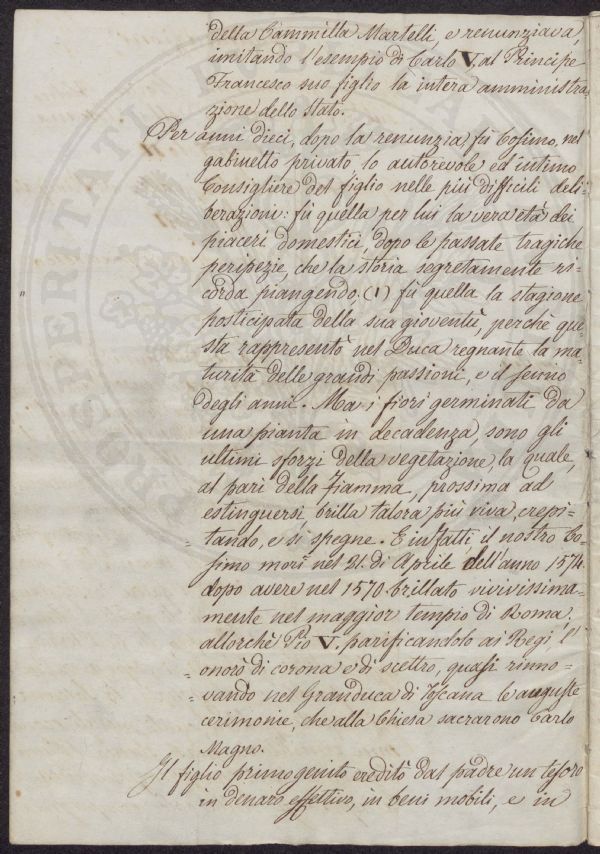 della Cammilla Martelli, e renunziava,
imitando l'esempio di Carlo V. al Principe
Francesco suo figlio la intera amministra-
zione dello Stato.
Per anni dieci, dopo la renunzia fù Cosimo, nel
gabinetto privato lo autorevole ed intimo
Consigliere del figlio nelle più difficili deli-
berazioni: fù quella per lui la vera età dei
piaceri domestici, dopo le passate tragiche
peripezie, che la storia segretamente ri-
corda piangendo. (1) fù quella la stagione
posticipata della sua gioventù, perchè que-
sta rappresentò nel Duca regnante la ma-
turità delle grandi passioni, e il senno
degli anni. Ma i fiori germinati da
una pianta in decadenza, sono gli
ultimi sforzi della vegetazione, la quale,
al pari della fiamma, prossima ad
estinguersi, brilla talora più viva, crepi-
tando, e si spegne. E in fatti, il nostro Co-
simo morì nel 21. di Aprile dell'anno 1574.
dopo avere nel 1570. brillato vivivissima-
mente nel maggior tempio di Roma,
allorchè Pio V. parificandolo ai Regi, l'
onorò di corona e di scettro, quasi rinno-
vando nel Granduca di Toscana le auguste
cerimonie, che alla Chiesa sacrarono Carlo
Magno.
Il figlio primogenito ereditò dal padre un tesoro
in denaro effettivo, in beni mobili, e in
PROSPERITATI